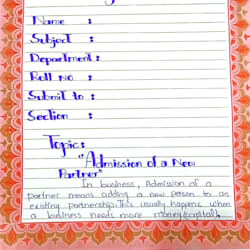 Name :
Subject :
Department :
Roll no :
Submit to :
Section :
Topic:
"Admission of a New
Partner"
In business, Admission of a
partner means adding a new person to an
existing partnership. This usually happens when
a business needs more money (capital),